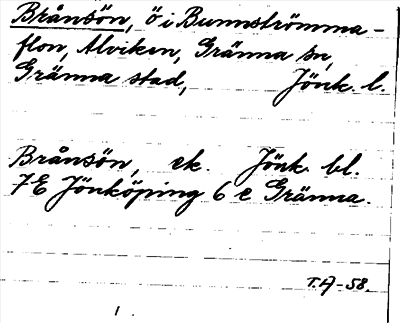 Brånsön, ö i Bunnströmma-
flon, Alviken, Gränna sn,
Gränna stad, Jönk. l.
Brånsön, ek. Jönk. bl.
7E Jönköping 6 e Gränna.
T.A-58.
1.